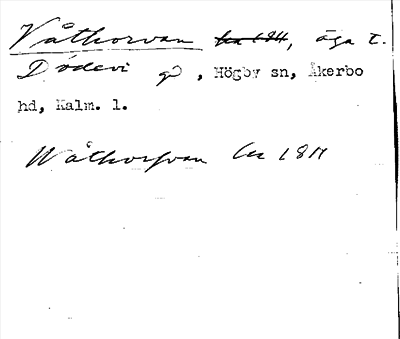 Våthorvan, äga t.
Dödevi gd, Högby sn, Åkerbo
hd, Kalm. l.
Wåthorfvan